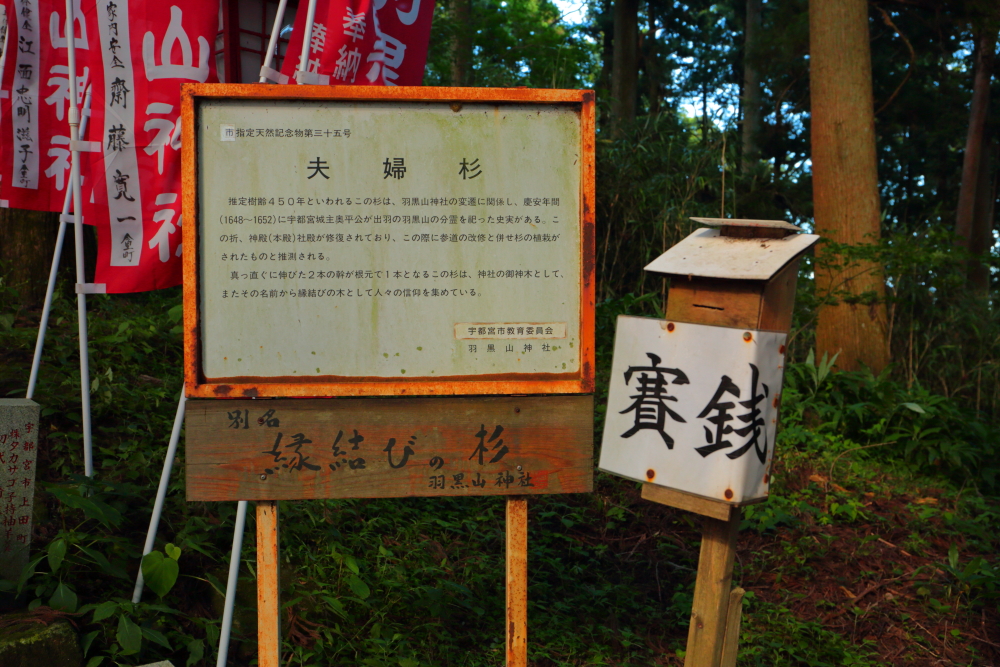 家内安全 齋藤寛一 金里町
山神社
奉納
市指定天然記念物第三十五号
夫婦杉
推定樹齢450年といわれるこの杉は、羽黒山神社の変遷に関係し、慶安年間
(1648〜1652)に宇都宮城主奥平公が出羽の羽黒山の分霊を祀った史実がある。こ
の折、神殿(本殿)社殿が修復されており、この際に参道の改修と併せ杉の植栽が
されたものと推測される。
真っ直ぐに伸びた2本の幹が根元で1本となるこの杉は、神社の御神木として、
またその名前から縁結びの木として人々の信仰を集めている。
宇都宮市教育委員会
羽黒山神社
別名
縁結びの杉
羽黒山神社
賽銭
宇都宮市上田町